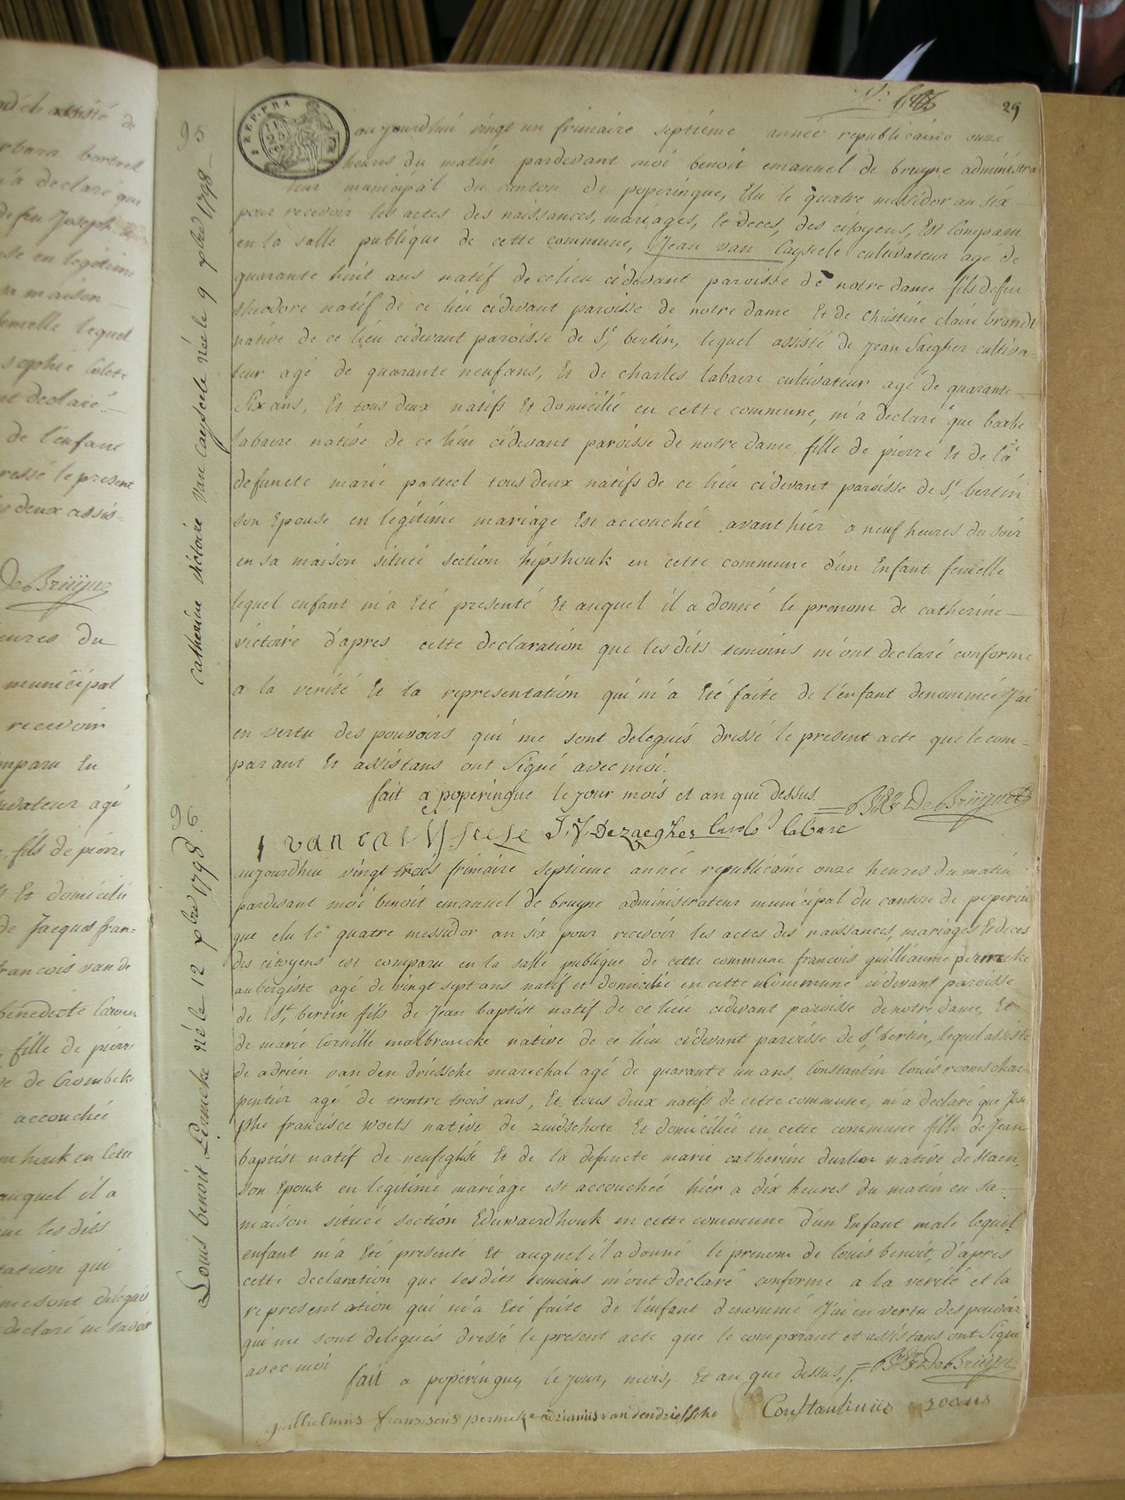 29
REP. FRA
aujourdhui vingt un frimaire septieme année republicaine onze
heures du matin pardevant moi benoit emanuel de bruyne administra
teur municipal du canton de poperingue, Elu le quatre messidor an six
pour recevoir les actes des naissances, mariages, et deces, des citoyens, Est comparu
en la salle publique de cette commune, Jean van Cayseele cultivateur agé de
quarante huit ans natif de ce lieu cidevant paroisse de notre dame fils de feu
theodore natif de ce lieu cidevant paroisse de notre dame Et de christine claire brandt
native de ce lieu cidevant paroisse de St bertin, lequel assisté de Jean Saegher cultiva-
teur agé de quarante neuf ans, Et de charles labaere cultivateur agé de quarante
Six ans, Et tous deux natifs Et domicilié en cette commune, m'a declaré que barbe
labaere native de ce lieu cidevant paroisse de notre dame, fille de pierre Et de la
defuncte marie patteel tous deux natifs de ce lieu cidevant paroisse de St bertin
son Epouse en legitime mariage Est accouchée avant hier a neuf heures du soir
en sa maison située section hipshouk en cette commune d'un Enfant femelle
lequel enfant m'a Eté presenté Et auquel il a donné le prenom de catherine
victoire d'apres cette declaration que les dits temoins m'ont declaré conforme
a la verité Et la representation qui m'a Eté faite de l'enfant denommée J'ai
en vertu des pouvoirs qui me sont delegués dressé le present acte que le com-
parant Et assistans ont signé avec moi.
fait a poperingue le jour mois et an que dessus B: E: De Bruyne
J van cayseele J. J. Dezaegher carolus labare
aujourdhui vingt trois frimaire septieme année republicaine onze heures du matin
pardevant moi benoit emanuel de bruyne administrateur municipal du canton de poperin
gue elu le quatre messidor an six pour recevoir les actes des naissances, mariages Et deces
des citoyens est comparu en la salle publique de cette commune francois guilliaume permeke
aubergiste agé de vingt sept ans natif et domicilié en cette commune cidevant paroisse
de St bertin fils de Jean baptist natif de ce lieu cidevant paroisse de notre dame, Et
de marie cornille malbrancke native de ce lieu cidevant paroisse de St bertin, lequel assisté
de adrien van den driessche marechal agé de quarante un ans, Constantin louis rooms char-
pentier agé de trente trois ans, Et tous deux natifs de cette commune, m'a declaré que Jose
phe francisce woets native de zuidschote Et domiciliée en cette commune fille de Jean
baptist natif de neufeglise Et de la defuncte marie catherine native de
son Epouse en legitime mariage est accouchée hier a dix heures du matin en sa
maison située section Eduwaerdhouk en cette commune d'un Enfant male lequel
enfant m'a Eté presenté Et auquel il a donné le prenom de louis benoit, d'apres
cette declaration que les dits temoins m'ont declaré conforme a la verité et la
representation qui m'a Eté faite de l'enfant denommé J'ai en vertu des pouvoirs
qui me sont delegués dressé le present acte que le comparant et assistans ont signé
avec moi
fait a poperingue, le jour, mois, Et an que dessus B: E: De Bruyne
guillelmus franciscus permeke adrianus vandendriessche Constantinus rooms
catherine victoire van Cayseele née le 9 xbre 1798
95
Louis benoit Permeke né le 12 xbre 1798
96
De Bruyne
heures du
municipal
recevoir
comparu En
cultivateur agé
fils de pierre
Et domicilié
de Jacques fran-
francois van de
benedicte
fille de pierre
de Crombeke
accouchée
houk en cette
auquel il a
que les dits
qui
me sont delegués
declaré ne savoir